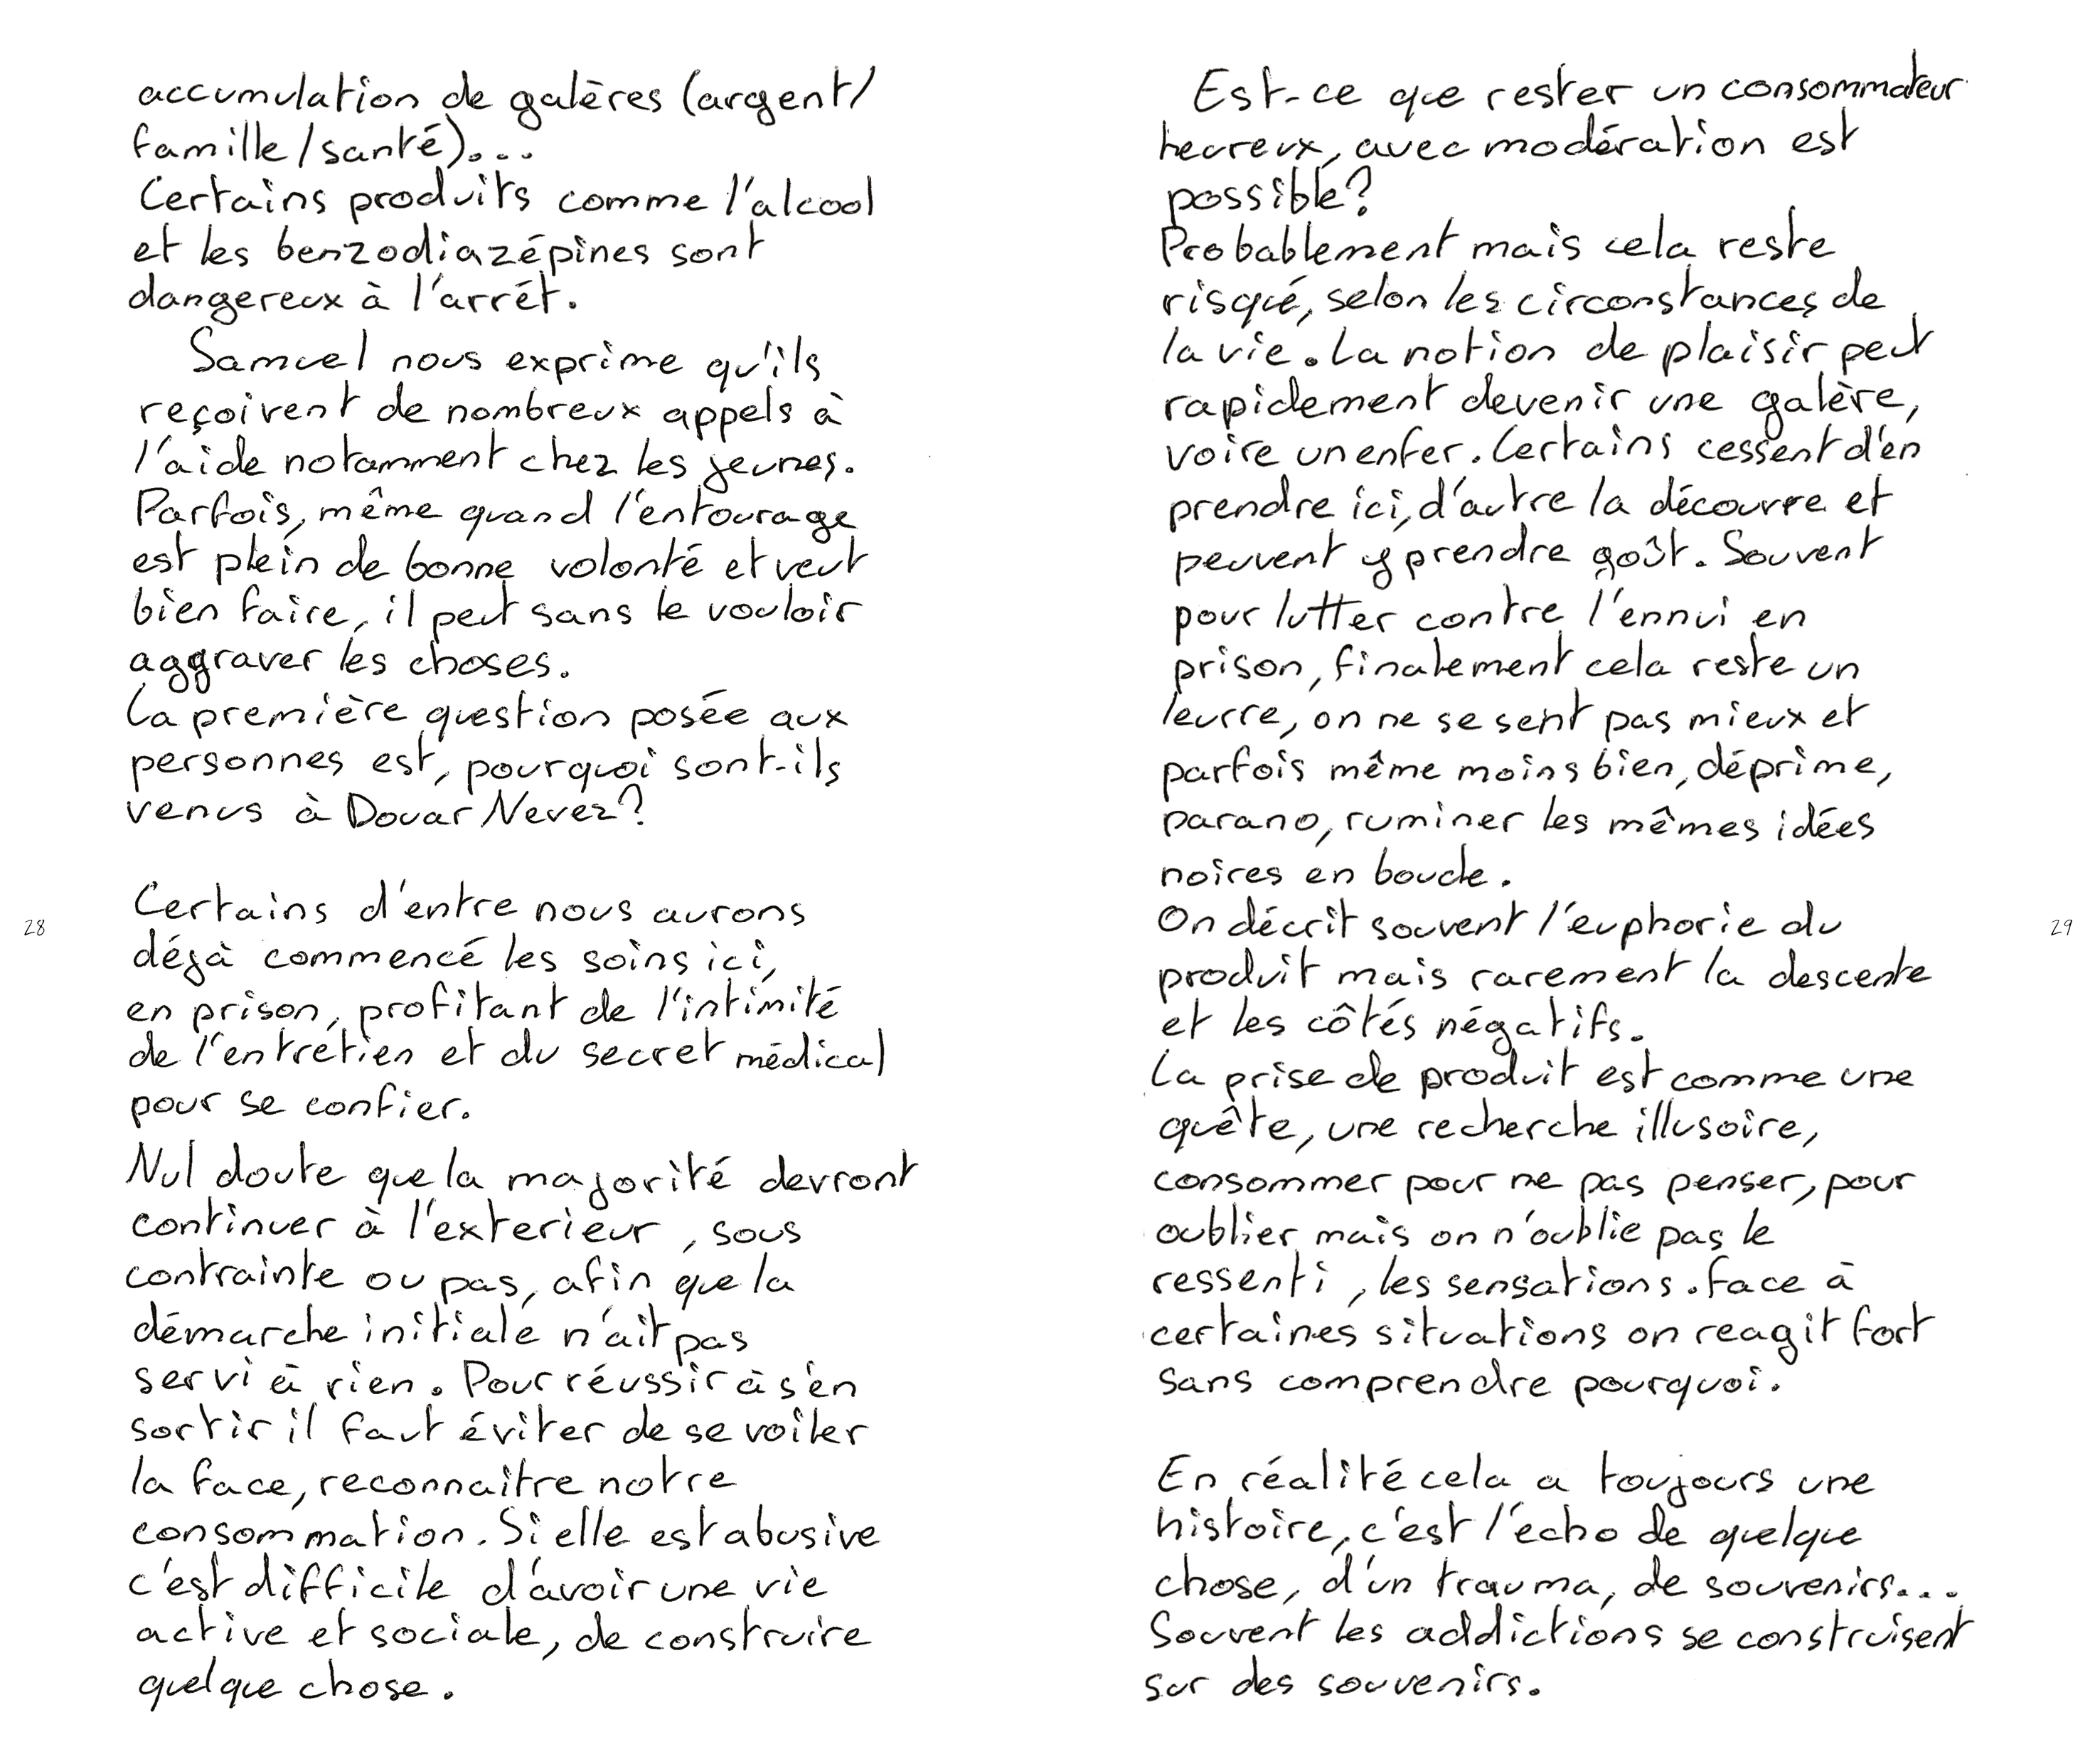 accumulation de galères (argent/
famille/santé)...
Certains produits comme l'alcool
et les benzodiazépines sont
dangereux à l'arrêt.
Samuel nous exprime qu'ils
reçoivent de nombreux appels à
l'aide notamment chez les jeunes.
Parfois, même quand l'entourage
est plein de bonne volonté et veut
bien faire, il peut sans le vouloir
aggraver les choses.
La première question posée aux
personnes est, pourquoi sont-ils
venus à Douar Nevez?
Certains d'entre nous aurons
déjà commencé les soins ici,
en prison, profitant de l'intimité
de l'entretien et du secret médical
pour se confier.
Nul doute que la majorité devront
continuer à l'exterieur, sous
contrainte ou pas, afin que la
démarche initiale n'ait pas
servi à rien. Pour réussir à s'en
sortir il faut éviter de se voiler
la face, reconnaître notre
consommation. Si elle est abusive
c'est difficile d'avoir une vie
active et sociale, de construire
quelque chose.
28
Est-ce que rester un consommateur
heureux, avec modération est
possible?
Probablement mais cela reste
risqué, selon les circonstances de
la vie. La notion de plaisir peut
rapidement devenir une galère,
voire un enfer. Certains cessent d'en
prendre ici, d'autre la découvre et
peuvent y prendre goût. Souvent
pour lutter contre l'ennui en
prison, finalement cela reste un
leurre, on ne se sent pas mieux et
parfois même moins bien, déprime,
parano, ruminer les mêmes idées
noires en boucle.
On décrit souvent l'euphorie du
produit mais rarement la descente
et les côtés négatifs.
La prise de produit est comme une
quête, une recherche illusoire,
consommer pour ne pas penser, pour
oublier mais on n'oublie pas le
ressenti, les sensations. Face à
certaines situations on reagit fort
sans comprendre pourquoi.
En réalité cela a toujours une
histoire, c'est l'écho de quelque
chose, d'un trauma, de souvenirs...
Souvent les addictions se construisent
sur des souvenirs.
29